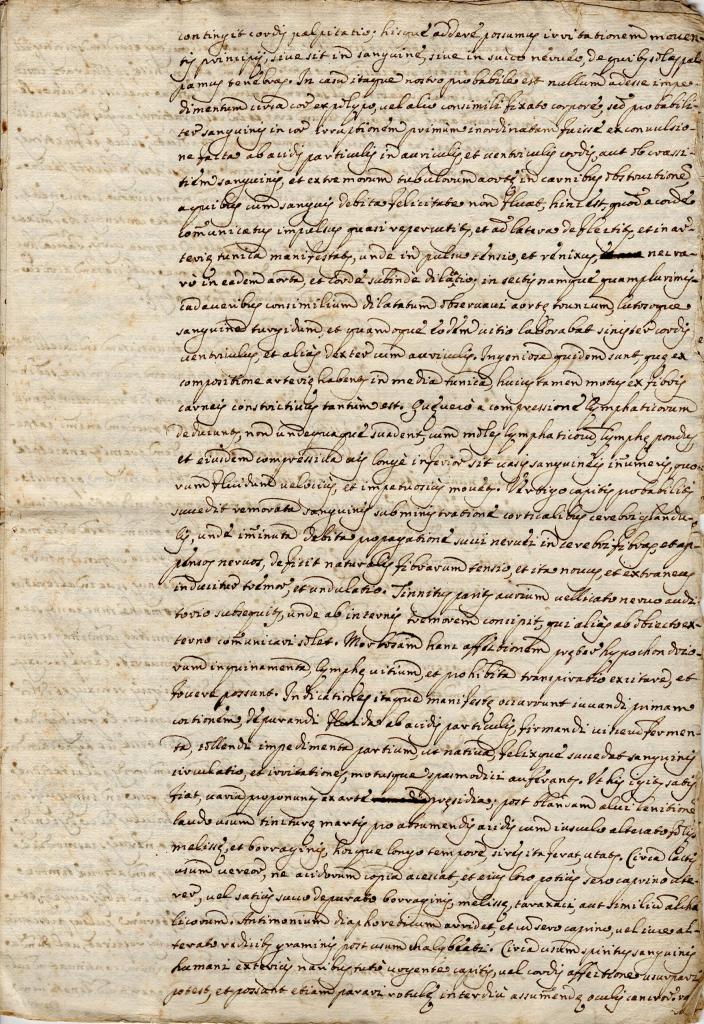 contingit cordis palpitatio; hisque addere possumus irritationem moven-
tis principij, sive sit in sanguine, sive in succo nerveo, de quibus
tenebras. In casu itaque nostro probabile est nullum adesse impe-
dimentum circa cor ex polypo, vel alio consimili fixato corpore, sed probabili-
ter sanguinis in cor irruitionem primum inordinatam fuisse ex convulsio-
ne facta ab acidis particulis in auriculis, et ventriculis cordis, aut ob crassi-
tiem sanguinis, et extremorum tubulorum aortę in carnibus obstructione
a quibus cum sanguis debita felicitate non fluat, hinc est, quod a corde
communicatus impulsus quasi repercutit, et ad latera deflectit, et in ar-
terię tunica manifestat, unde in pulsu tensio, et renixus, nec ra-
ro in eadem aorta, et corde subinde dilatio, in sectis namque quamplurimis
cadaveribus consimilium dilatatum observavi aortę truncum, lutosoque
sanguine turgidum, et quandoque eodem vitio laborabat sinister cordis
ventriculus, et alias dexter cum auriculis. Ingeniose quidem sunt, quę ex
compositione arterię habent in media tunica, huius tamen motus ex fibris
carneis constrictivus tantum est. Quę vero a compressione lymphaticorum
deducunt, non undequaque suadent, cum moles lymphaticorum, lymphę pondus
et eiusdem compressiva vis longe inferior sit vasis sanguineis innumeris, quo-
rum fluidum velocius, et impetuosius movet. Vertigo capitis probabiliter
succedit remorata sanguinis subministratione corticalibus cerebri glandu-
lis, unde iminuta debita propagatione succi nervei in cerebri fibras, et ap-
pensos nervos, deficit naturalis fibrarum tensio, et ita novus, et extraneus
inducitur tremor, et undulatio. Tinnitus parit aurium vellicato nervo audi-
torio subsequit, unde ab internis tremorem concipit, qui alias ab obiecto ex-
terno communicari solet. Morbosam hanc affectionem pręter hypochondrio-
rum inquinamenta, lymphę vitium, et prohibita transpiratio excitare, et
fovere possunt. Indicationes itaque manifestę occurrunt iuvandi primam
coctionem, depurandi fluida ab acidis particulis, firmandi viscerum fermen-
ta, tollendi impedimenta partium, ut nativa, felixque succedat sanguinis
circulatio, et irritationes, motusque spasmodici auferant. Ut his igit satis
fiat, varia proponunt ex arte pręsidia; post blandam alvi lenitionem
laudo usum tincturę martis pro absumendis acidis cum iusculo alterato folijs
melissę, et borraginis, hocque longo tempore, si res ita ferat, utat. Circa lactis
usum vereor, ne acidorum copia acescat, et eius loco potius sero caprino ute-
rer, vel satius succo depurato borraginis, melissę, taraxaci, aut similium alcha-
licorum. Antimonium diaphoreticum arridet, et cum sero caprino, vel iure al-
terato radicibus graminis post usum chalybeati. Circa usum spiritus sanguinis
humani exterius naribus tuto urgente capitis, vel cordis affectione usurpari
potest, et possunt etiam parari rotulę interdiu assumendę oculis cancrorum